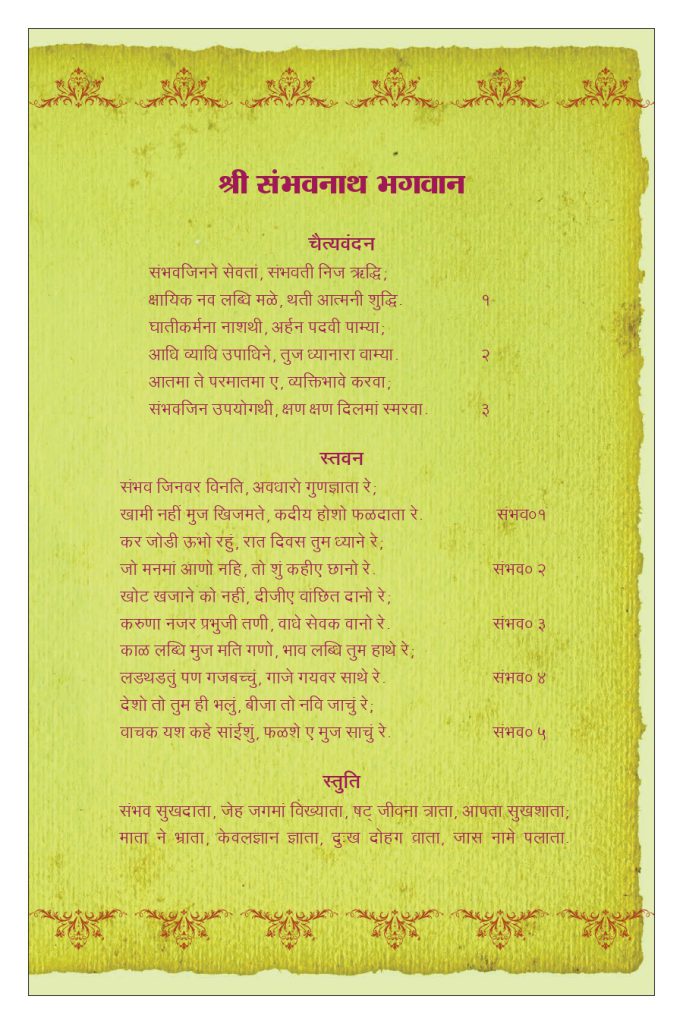 श्री संभवनाथ भगवान
चैत्यवंदन
संभवजिनने सेवतां, संभवती निज ऋद्धि;
क्षायिक नव लब्धि मळे, थती आत्मनी शुद्धि. १
घातीकर्मना नाशथी, अर्हन पदवी पाम्या;
आधि व्याधि उपाधिने, तुज ध्यानारा वाम्या. २
आतमा ते परमातमा ए, व्यक्तिभावे करवा;
संभवजिन उपयोगथी, क्षण क्षण दिलमां स्मरवा. ३
स्तवन
संभव जिनवर विनति, अवधारो गुणज्ञाता रे;
खामी नहीं मुज खिजमते, कदीय होशो फळदाता रे. संभव०१
कर जोडी ऊभो रहुं, रात दिवस तुम ध्याने रे;
जो मनमां आणो नहि, तो शुं कहीए छानो रे. संभव० २
खोट खजाने को नहीं, दीजीए वांछित दानो रे;
करुणा नजर प्रभुजी तणी, वाधे सेवक वानो रे. संभव० ३
काळ लब्धि मुज मति गणो, भाव लब्धि तुम हाथे रे;
लडथडतुं पण गजबच्चुं, गाजे गयवर साथे रे. संभव० ४
देशो तो तुम ही भलुं, बीजा तो नवि जाचुं रे;
वाचक यश कहे सांईशुं, फळशे ए मुज साचुं रे. संभव० ५
स्तुति
संभव सुखदाता, जेह जगमां विख्याता, षट् जीवना त्राता, आपता सुखशाता;
माता ने भ्राता, केवलज्ञान ज्ञाता, दुःख दोहग व्राता, जास नामे पलाता.